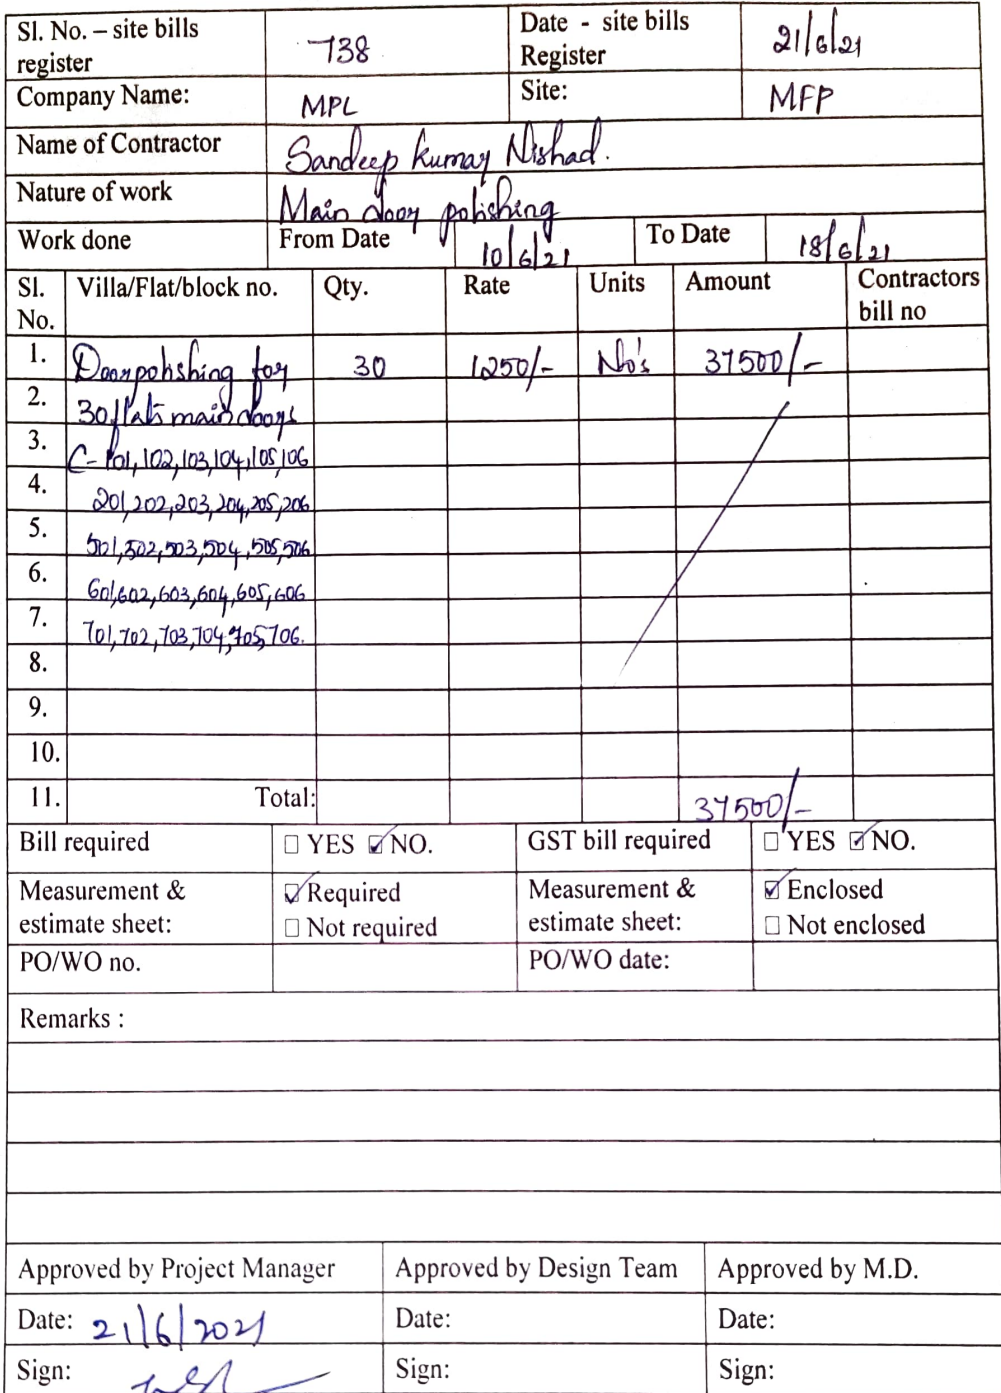 Sl. No. – site bills register 738 Date - site bills Register 21/6/21
Company Name: MPL Site: MFP
Name of Contractor Sandeep kumar Nishad.
Nature of work Main door polishing
Work done From Date 10/6/21 To Date 18/6/21
Sl. No. Villa/Flat/block no. Qty. Rate Units Amount Contractors bill no
1. Doorpolishing for 30 1250/- No's 37500/-
2. 30 flats main doors
3. C-101, 102, 103, 104, 105, 106
4. 201, 202, 203, 204, 205, 206
5. 501, 502, 503, 504, 505, 506
6. 601, 602, 603, 604, 605, 606
7. 701, 702, 703, 704, 705, 706.
8.
9.
10.
11. Total: 37500/-
Bill required ☐ YES ☑ NO. GST bill required ☐ YES ☑ NO.
Measurement & estimate sheet: ☑ Required ☐ Not required Measurement & estimate sheet: ☑ Enclosed ☐ Not enclosed
PO/WO no. PO/WO date:
Remarks :
Approved by Project Manager Approved by Design Team Approved by M.D.
Date: 21/6/2021 Date: Date:
Sign: Sign: Sign: